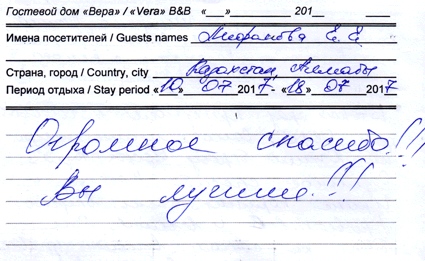 Гостевой дом «Вера» / «Vera» B&B «__» ________ 201__
Имена посетителей / Guests names Е. Е.
Страна, город / Country, city Казахстан, Алматы
Период отдыха / Stay period «10» 07 2017 - «18» 07 2017
Огромное спасибо!!!
Вы лучшие!!!